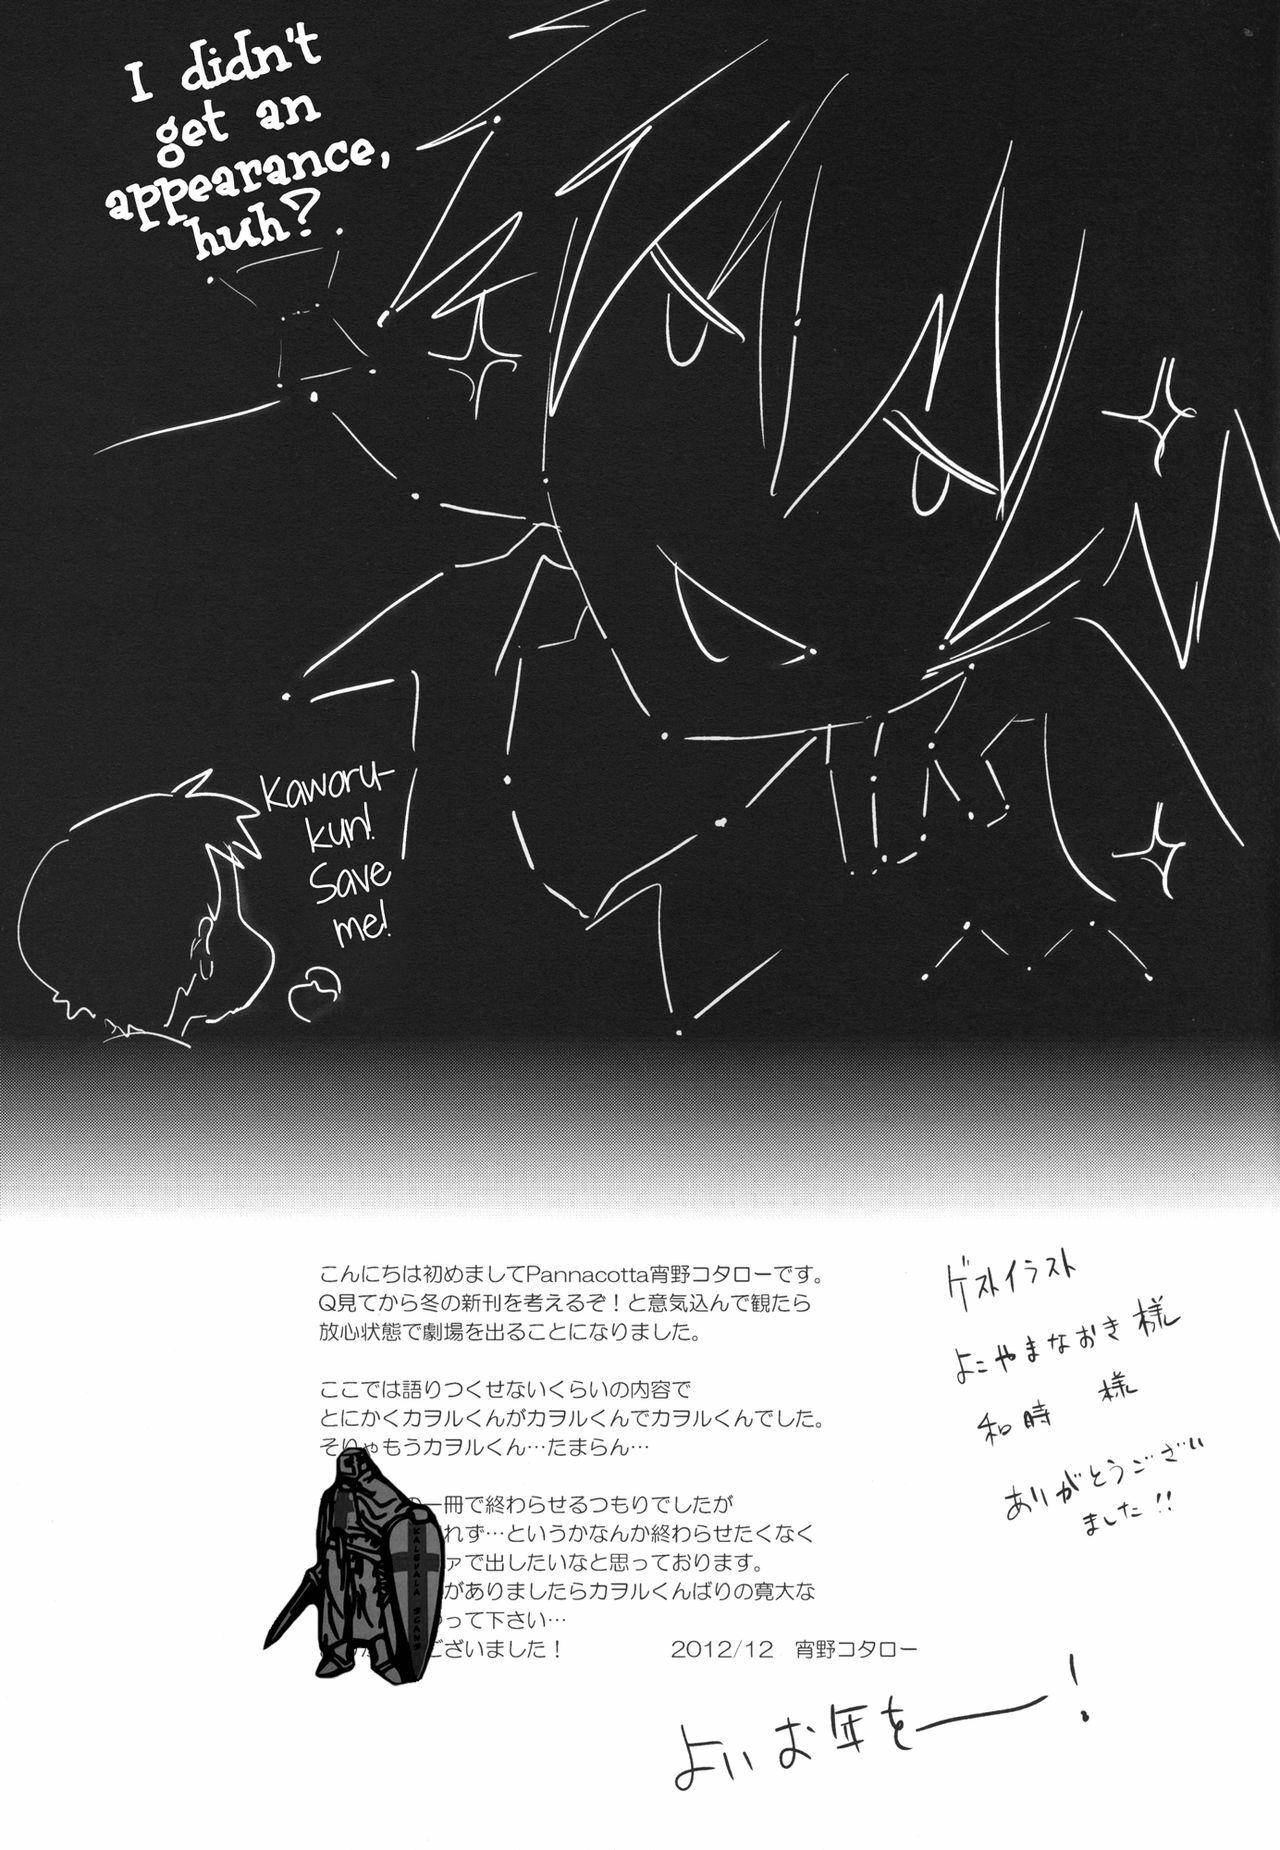 I didn't
get an
appearance,
huh?
Kaworu-
kun!
Save
me!
こんにちは初めましてPannacotta宵野コタローです。
Q見てから冬の新刊を考えるぞ！と意気込んで観たら
放心状態で劇場を出ることになりました。
ここでは語りつくせないくらいの内容で
とにかくカヲルくんがカヲルくんでカヲルくんでした。
そりゃもうカヲルくん…たまらん…
の一冊で終わらせるつもりでしたが
れず…というかなんか終わらせたくなく
ァで出したいなと思っております。
がありましたらカヲルくんばりの寛大な
って下さい…
ございました！ 2012/12 宵野コタロー
KALEVALA SCANS
ゲストイラスト
よこやまなおき様
和時 様
ありがとうござい
ました!!
よいお年を――！